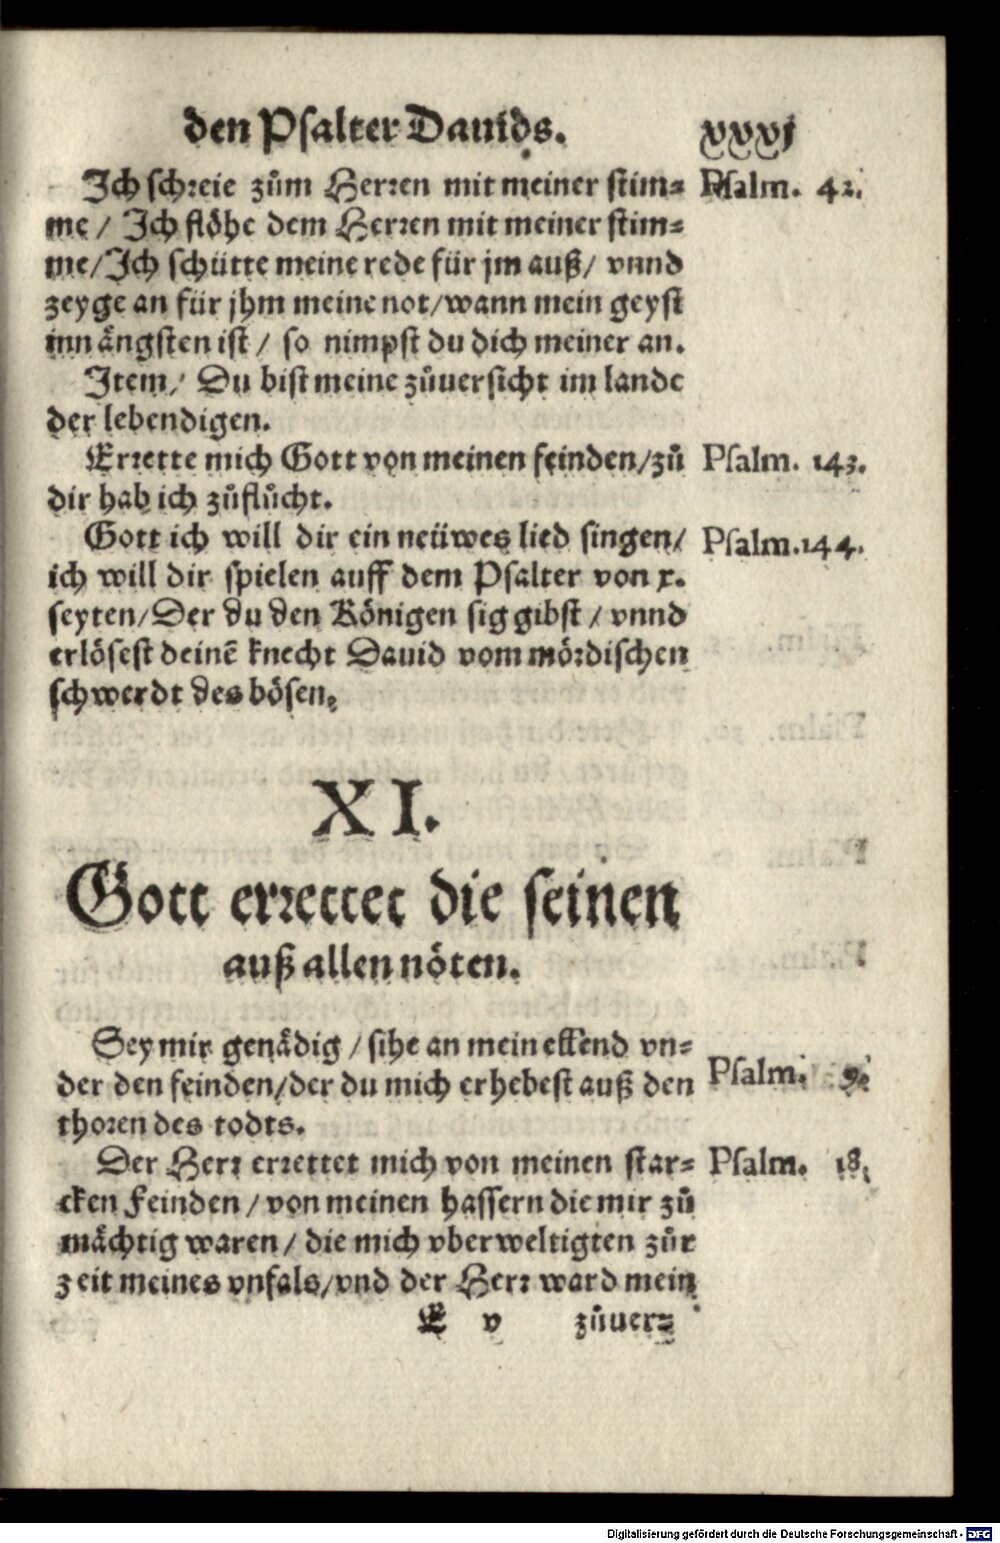 den Psalter Dauids. xxxj
Ich schreie zům Herren mit meiner stim= Psalm. 42.
me / Ich flöhe dem Herren mit meiner stim=
me/Ich schütte meine rede für jm auß/ vnnd
zeyge an für jhm meine not/wann mein geyst
inn ängsten ist / so nimpst du dich meiner an.
Item/ Du bist meine zůuersicht im lande
der lebendigen.
Errette mich Gott von meinen feinden/zů Psalm. 143.
dir hab ich zůflůcht.
Gott ich will dir ein neüwes lied singen/ Psalm. 144.
ich will dir spielen auff dem Psalter von x.
seyten/Der du den Königen sig gibst / vnnd
erlösest deinẽ knecht Dauid vom mördischen
schwerdt des bösen.
XI.
Gott errettet die seinen
auß allen nöten.
Sey mir genådig / sihe an mein ellend vn=
der den feinden/der du mich erhebest auß den Psalm. 9.
thoren des todts.
Der Herr errettet mich von meinen star= Psalm. 18.
cken Feinden / von meinen hassern die mir zů
mächtig waren / die mich vberweltigten zůr
zeit meines vnfals/vnd der Herr ward mein
E v zůuer=
Digitalisierung gefördert durch die Deutsche Forschungsgemeinschaft - DFG